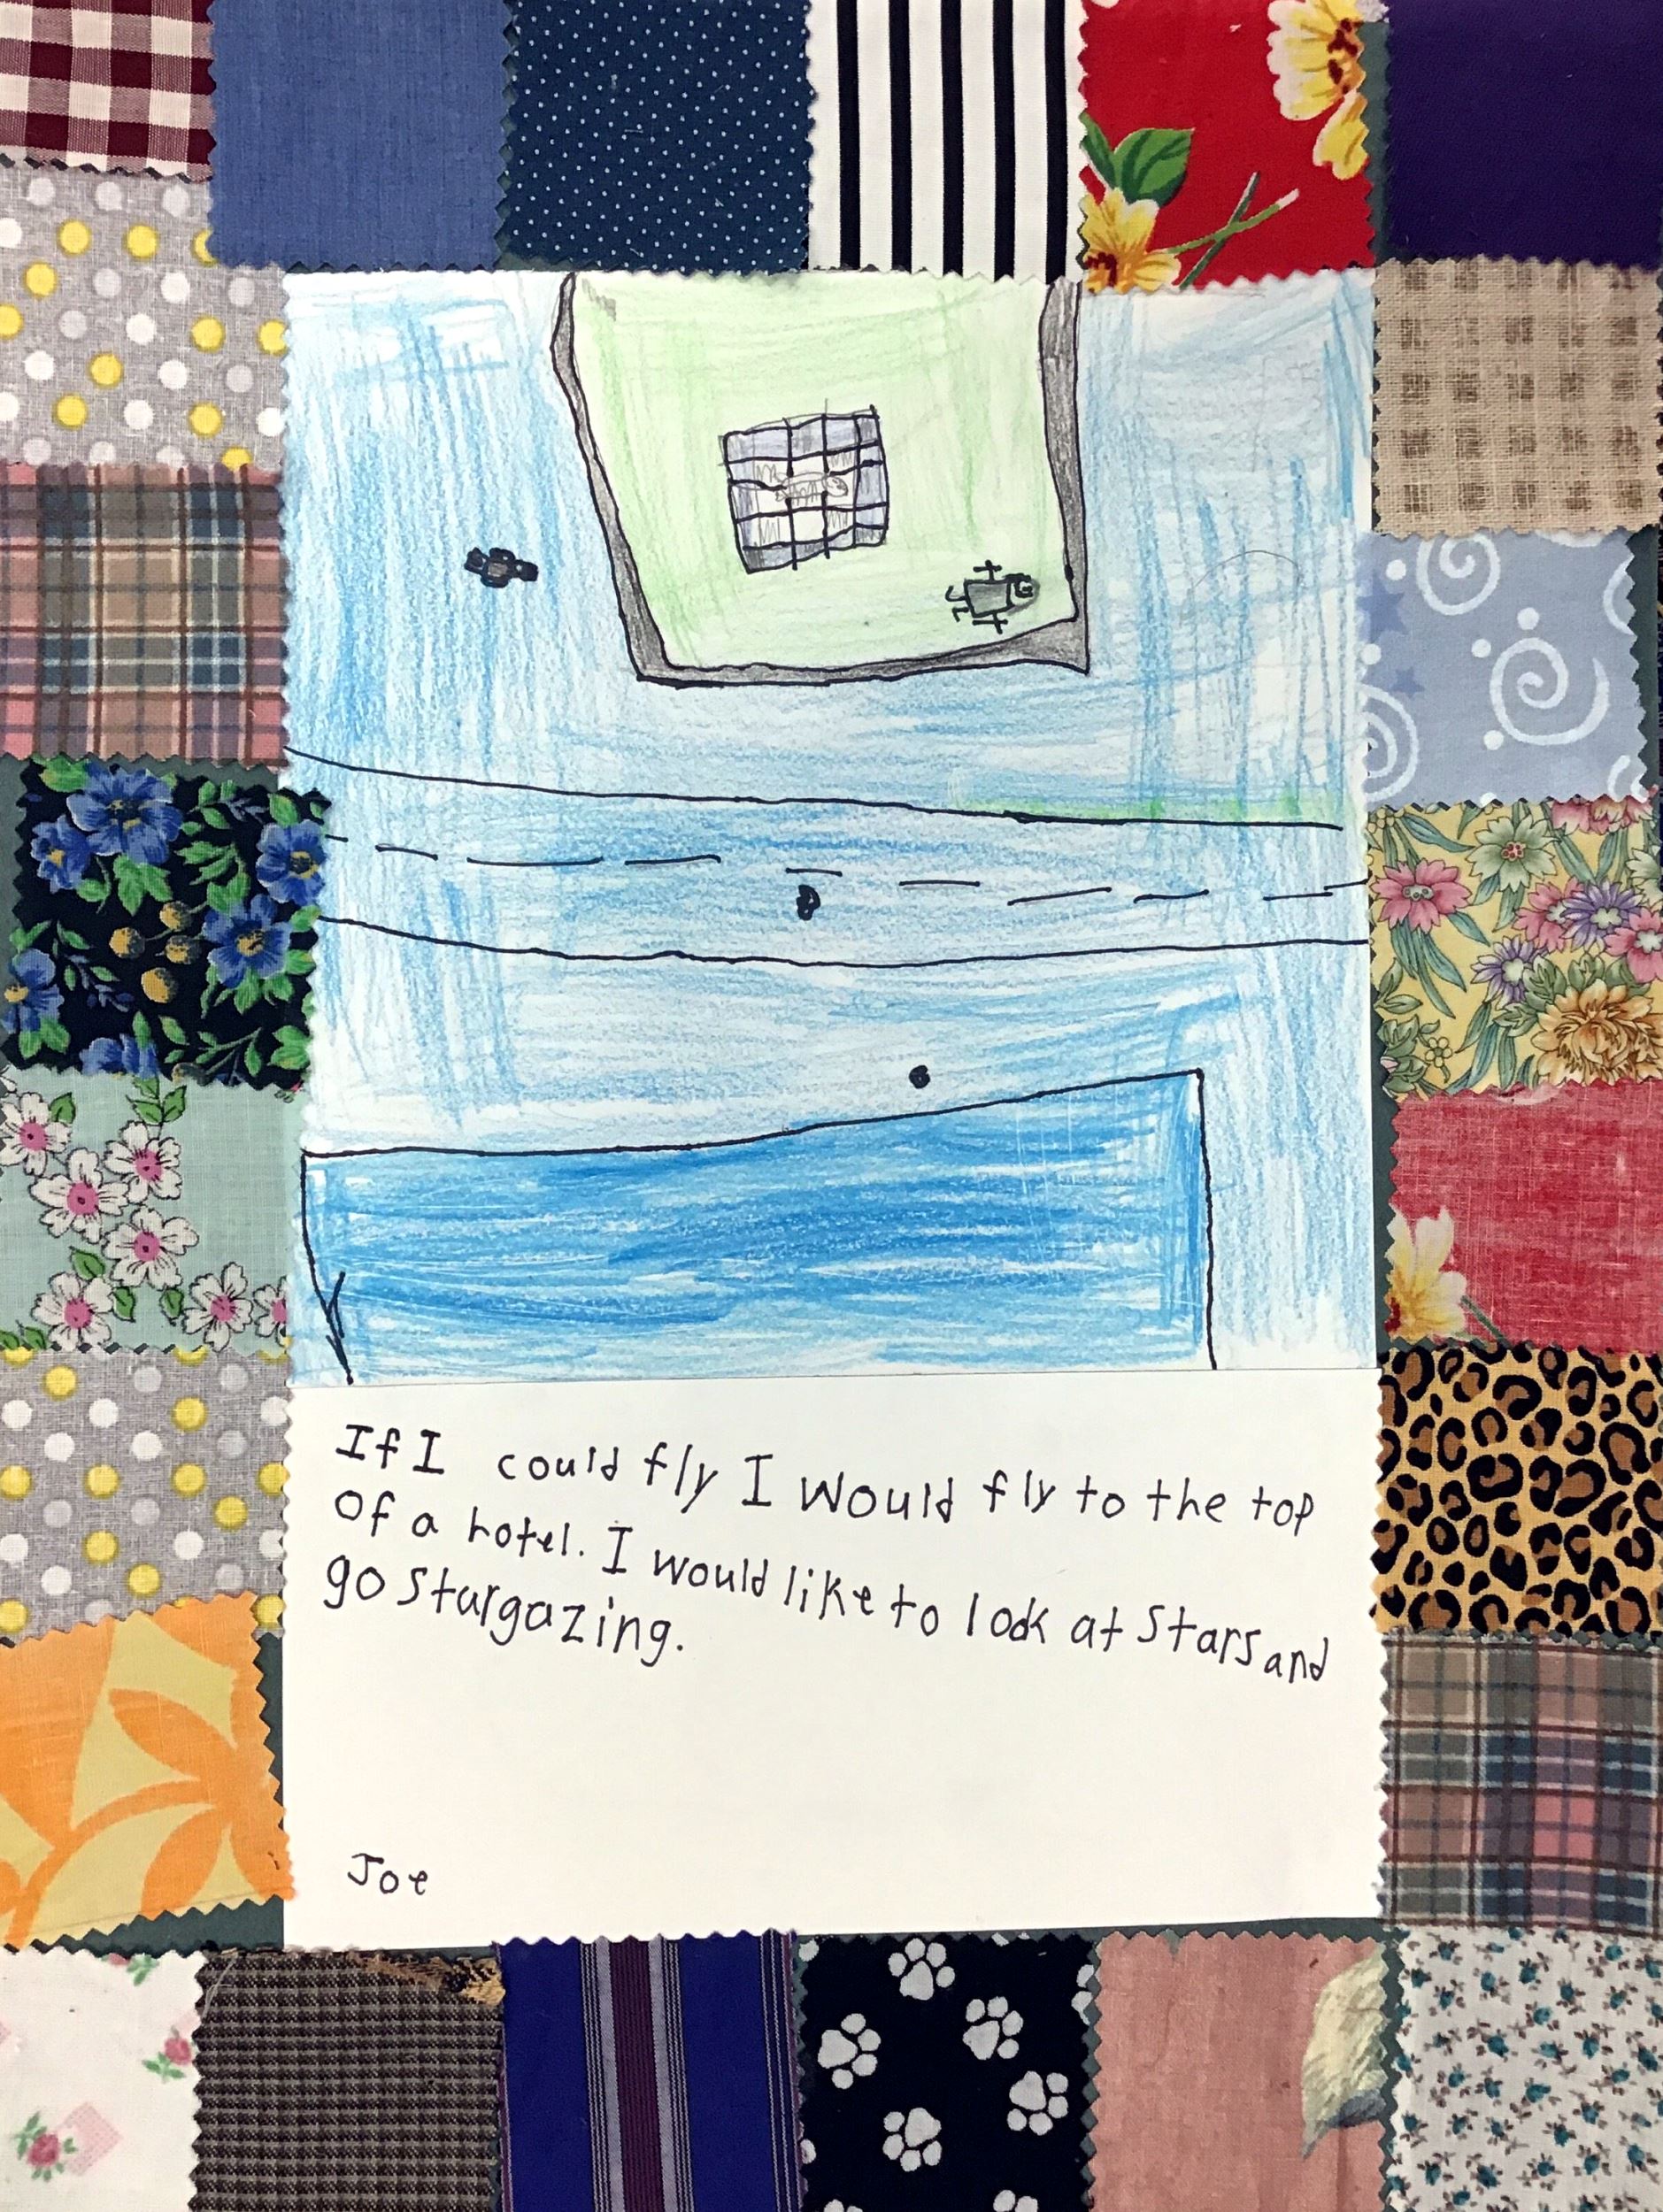 If I could fly I would fly to the top
of a hotel. I would like to look at stars and
go stargazing.
Joe